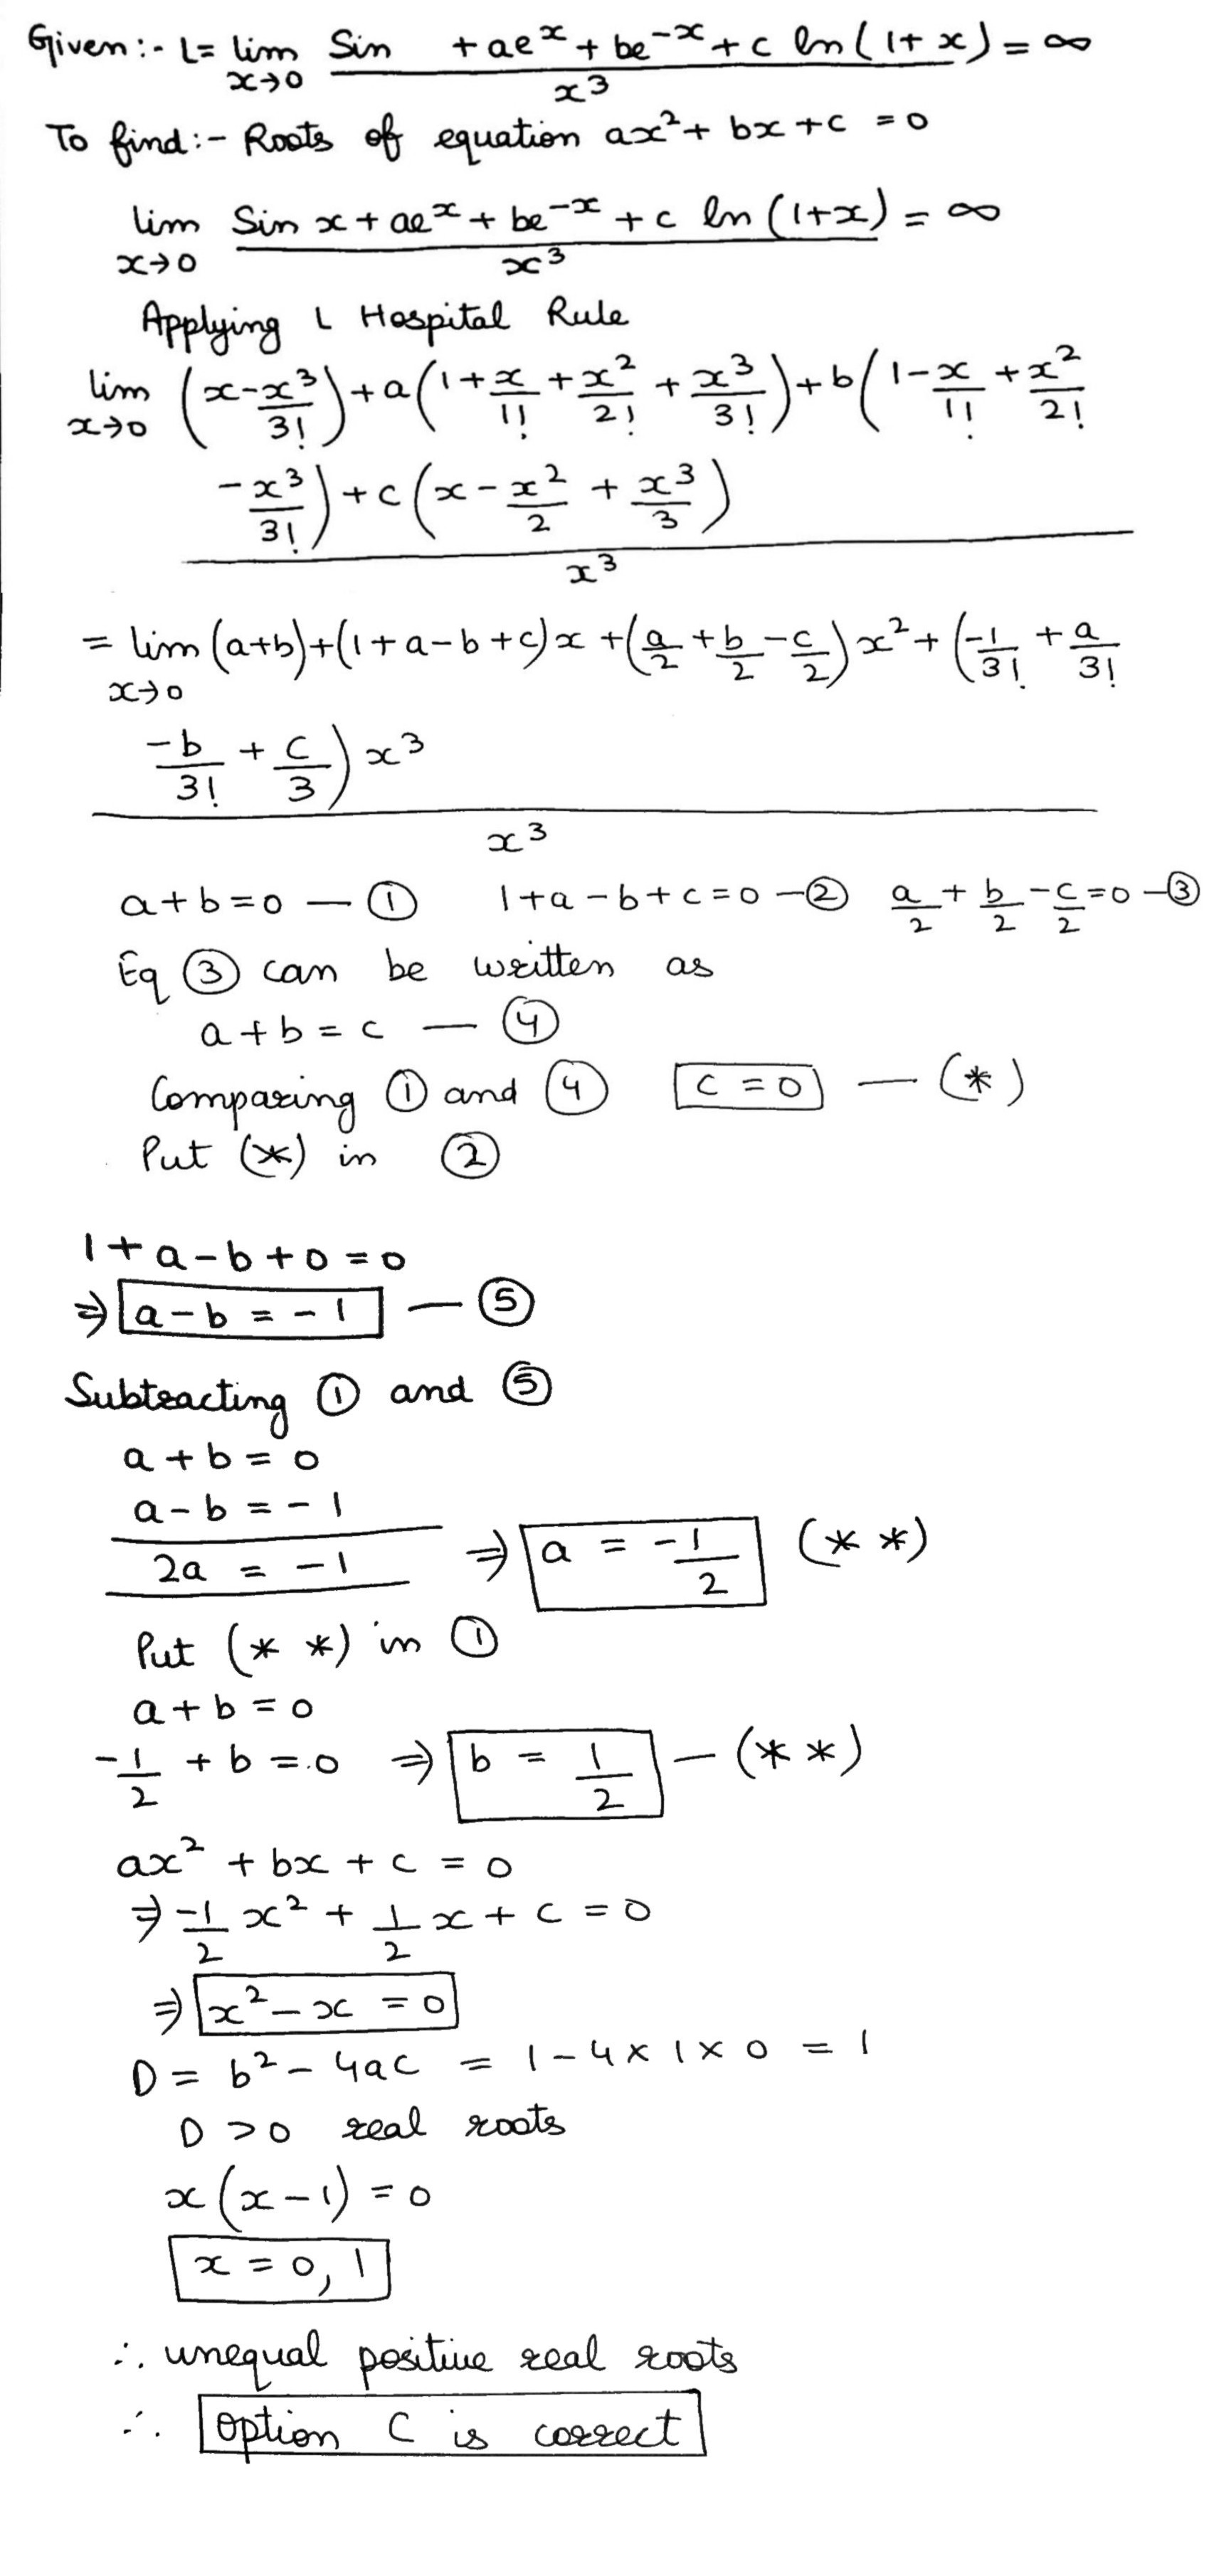 Given:- L= lim Sin + ae^x + be^-x + c ln(1+x) = ∞
x→0 x^3
To find:- Roots of equation ax^2 + bx + c = 0
lim Sin x + ae^x + be^-x + c ln(1+x) = ∞
x→0 x^3
Applying L Hospital Rule
lim (x-x^3/3!) + a(1+x/1! + x^2/2! + x^3/3!) + b(1-x/1! + x^2/2!
x→0
-x^3/3!) + c(x - x^2/2 + x^3/3)
x^3
= lim (a+b)+(1+a-b+c)x + (a/2 + b/2 - c/2)x^2 + (-1/3! + a/3!
x→0
-b/3! + c/3)x^3
x^3
a+b=0 — ① 1+a-b+c=0 -② a/2 + b/2 - c/2 = 0 -③
Eq ③ can be written as
a+b = c — ④
Comparing ① and ④ c = 0 — (*)
Put (*) in ②
1+a-b+0=0
⇒ a-b = -1 — ⑤
Subtracting ① and ⑤
a+b = 0
a-b = -1
2a = -1 ⇒ a = -1/2 (* *)
Put (* *) in ①
a+b=0
-1/2 + b =.0 ⇒ b = 1/2 — (* *)
ax^2 + bx + c = 0
⇒ -1/2 x^2 + 1/2 x + c = 0
⇒ x^2 - x = 0
D = b^2 - 4ac = 1-4×1×0 = 1
D > 0 real roots
x(x-1) = 0
x = 0, 1
∴ unequal positive real roots
∴ Option C is correct